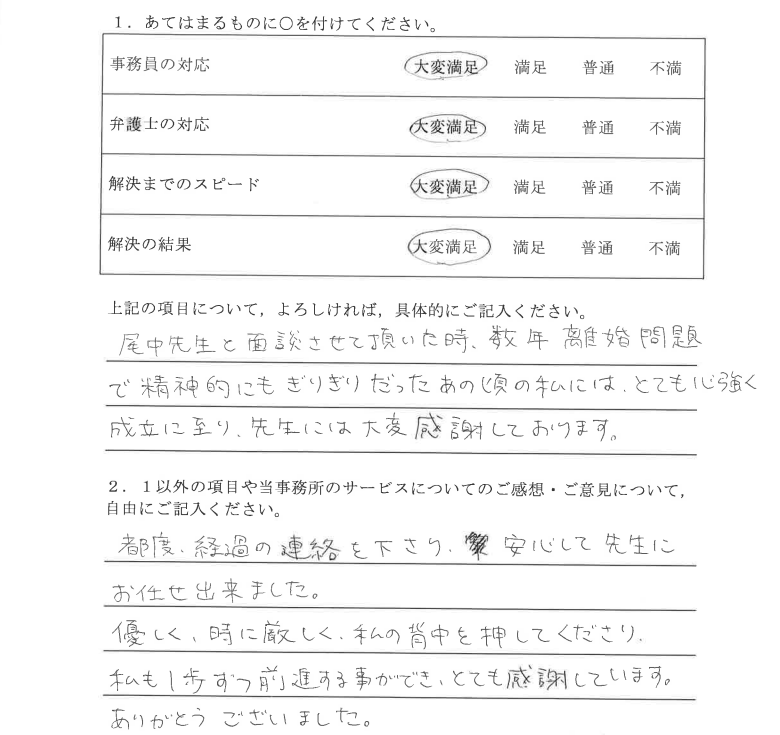 1．あてはまるものに○を付けてください。
事務員の対応 大変満足 満足 普通 不満
弁護士の対応 大変満足 満足 普通 不満
解決までのスピード 大変満足 満足 普通 不満
解決の結果 大変満足 満足 普通 不満
上記の項目について，よろしければ，具体的にご記入ください。
尾中先生と面談させて頂いた時、数年離婚問題
で精神的にもぎりぎりだったあの頃の私には、とても心強く
成立に至り、先生には大変感謝しております。
2．1以外の項目や当事務所のサービスについてのご感想・ご意見について，
自由にご記入ください。
都度、経過の連絡を下さり、安心して先生に
お任せ出来ました。
優しく、時に厳しく、私の背中を押してくださり、
私も1歩ずつ前進する事ができ、とても感謝しています。
ありがとうございました。